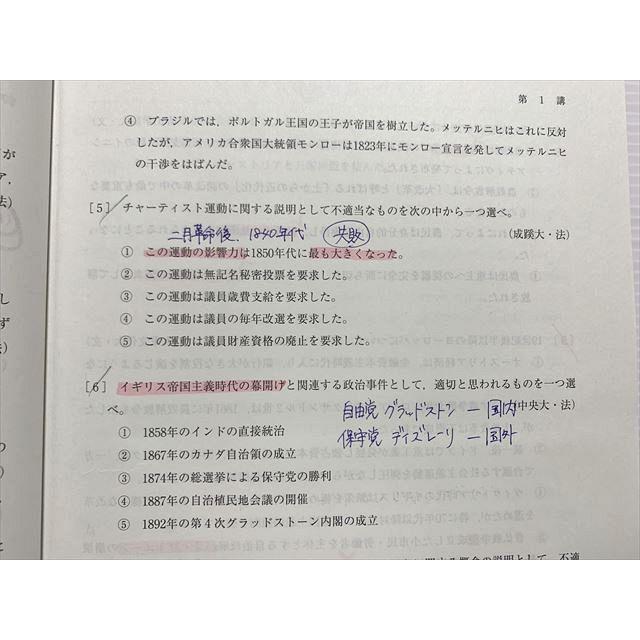 第 1 講
④ ブラジルでは，ポルトガル王国の王子が帝国を樹立した。メッテルニヒはこれに反対
したが，アメリカ合衆国大統領モンローは1823年にモンロー宣言を発してメッテルニヒ
の干渉をはばんだ。
[5] チャーティスト運動に関する説明として不適当なものを次の中から一つ選べ。
(成蹊大・法)
二月革命後 1840年代 失敗
① この運動の影響力は1850年代に最も大きくなった。
② この運動は無記名秘密投票を要求した。
③ この運動は議員歳費支給を要求した。
④ この運動は議員の毎年改選を要求した。
⑤ この運動は議員財産資格の廃止を要求した。
[6] イギリス帝国主義時代の幕開けと関連する政治事件として，適切と思われるものを一つ選
べ。
(中央大・法)
自由党 グラッドストン ― 国内
保守党 ディズレーリ ― 国外
① 1858年のインドの直接統治
② 1867年のカナダ自治領の成立
③ 1874年の総選挙による保守党の勝利
④ 1887年の自治植民地会議の開催
⑤ 1892年の第4次グラッドストーン内閣の成立